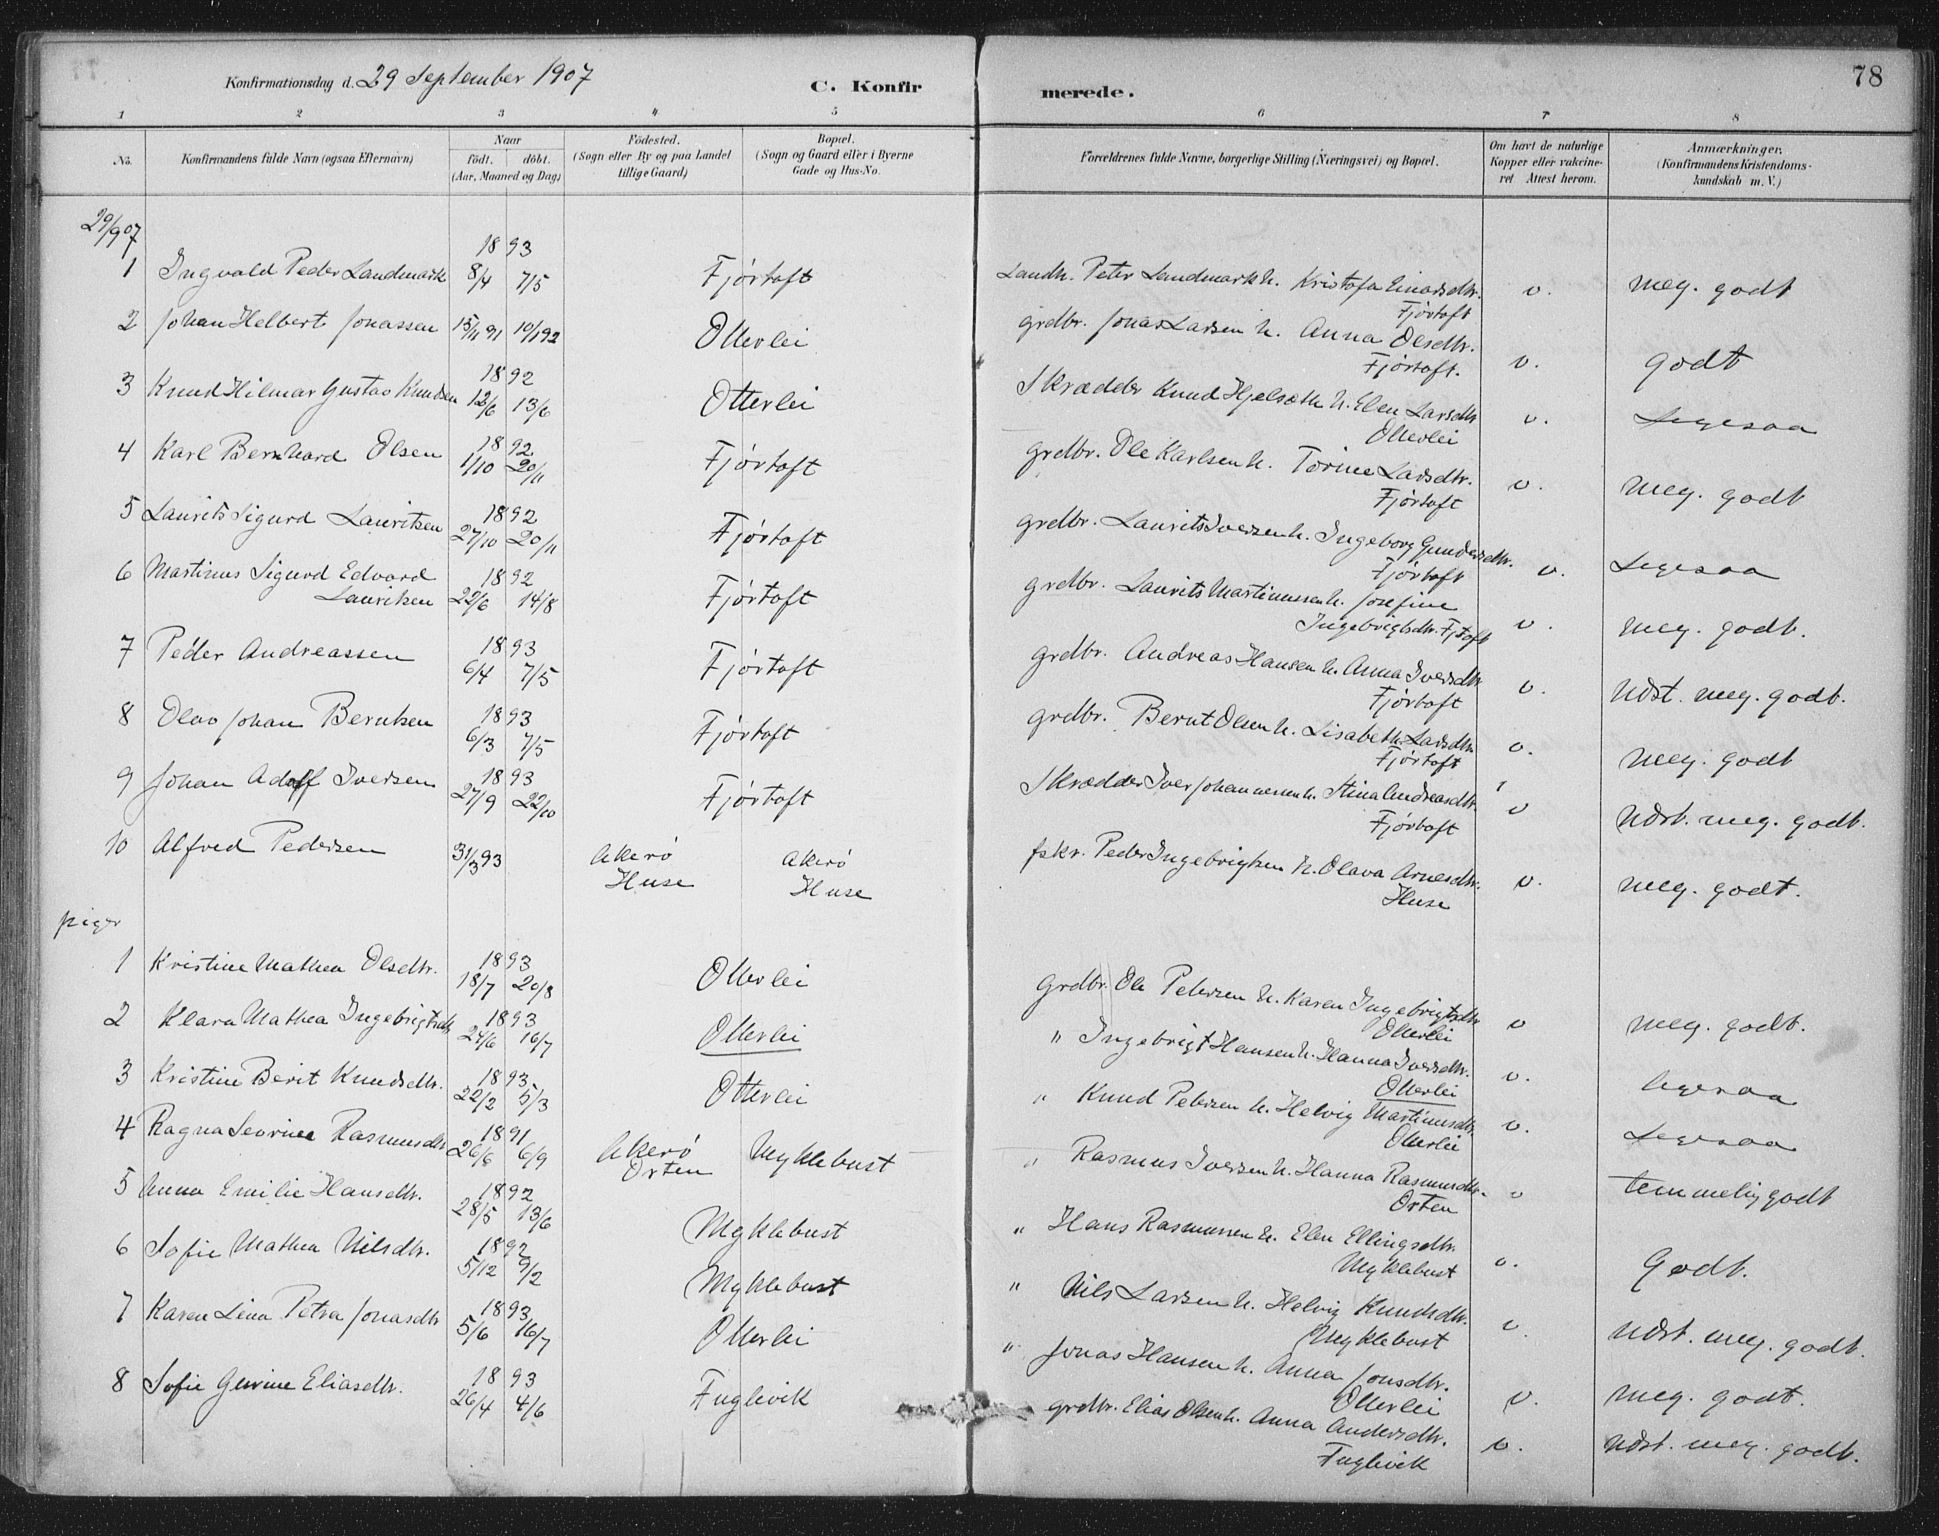 78
Konfirmationsdag d. 29 September 1907
C. Konfirmerede.
1 2 3 4 5 6 7 8
No.
Konfirmandens fulde Navn (ogsaa Efternavn)
Naar
födt. döbt.
(Aar, Maaned og Dag)
Födested.
(Sogn eller By og paa Landet
tillige Gaard)
Bopæl.
(Sogn og Gaard eller i Byerne
Gade og Hus-No.
Forældrenes fulde Navne, borgerlige Stilling (Næringsvei) og Bopæl.
Om havt de naturlige
Kopper eller vakcine-
ret Attest herom.
Anmærkninger.
(Konfirmandens Kristendoms-
kundskab m. V.)
29/9 07
1 Ingvald Peder Landmark 1893 8/4 7/5 Fjörtoft Landh. Peter Landmark h. Kristofa Einarsdtr. Fjörtoft v. meg. godt
2 Johan Helbert Jonassen 15/11 91 10/1 92 Otterlei grdbr. Jonas Larsen h. Anna Olsdtr. Fjörtoft. v. godt
3 Knud Hilmar Gustav Knudsen 1892 12/6 13/6 Otterlei Skrædder Knud Hjelseth h. Elen Larsdtr Otterlei v. Ligesaa
4 Karl Bernhard Olsen 1892 1/10 20/11 Fjörtoft grdbr. Ole Karlsen h. Torine Larsdtr. Fjörtoft v. meg. godt
5 Laurits Sigurd Lauritsen 1892 27/10 20/11 Fjörtoft grdbr. Laurits Iversen h. Ingeborg Gundersdtr. Fjörtoft v. Ligesaa
6 Martinus Sigurd Edvard
Lauritsen 1892 22/6 14/8 Fjörtoft grdbr. Laurits Martinussen h. Josefine
Ingebrigtsdtr. Fjtoft v. meg. godt.
7 Peder Andreassen 1893 6/4 7/5 Fjörtoft grdbr. Andreas Hansen h. Anna Iversdtr Fjörtoft v. Udst. meg. godt.
8 Olav Johan Berntsen 1893 6/3 7/5 Fjörtoft grdbr. Bernt Olsen h. Lisabeth Larsdtr. Fjörtoft v. meg. godt
9 Johan Adolf Iversen 1893 27/9 22/10 Fjörtoft Skrædder Iver Johannesen h. Stina Andreasdtr. Fjörtoft v Udst. meg. godt.
10 Alfred Pedersen 31/3 93 Akerö Huse Akerö Huse fskr. Peder Ingebrigtsen h. Olava Arnesdtr. Huse v. meg. godt.
piger
1 Kristine Mathea Olsdtr. 1893 18/7 20/8 Otterlei grdbr. Ole Petersen h. Karen Ingebrigtsdtr Otterlei v meg. godt.
2 Klara Mathea Ingebrigtsdtr 1893 24/6 16/7 Otterlei " Ingebrigt Hansen h. Hanna Iversdtr. Otterlei v. ligesaa
3 Kristine Berit Knudsdtr. 1893 22/2 5/3 Otterlei " Knud Petersen h. Helvig Martinusdtr. Otterlei v. Ligesaa
4 Ragna Severine Rasmusdtr 1891 26/6 6/9 Akerö Orten Myklebust " Rasmus Iversen h. Hanna Rasmusdtr. Orten v temmelig godt
5 Anna Emilie Hansdtr. 1892 28/5 13/6 Myklebust " Hans Rasmussen h. Elen Ellingsdtr. Myklebust v. Godt.
6 Sofie Mathea Nilsdtr. 1892 5/12 9/2 Myklebust " Nils Larsen h. Helvig Knudsdtr. Myklebust v. Udst. meg. godt.
7 Karen Lina Petra Jonasdtr 1893 5/6 16/7 Otterlei " Jonas Hansen h. Anna Jonsdtr. Otterlei v. meg. godt.
8 Sofie Gurine Eliasdtr. 1893 26/4 4/6 Fuglevik grdbr. Elias Olsen h. Anna Andersdtr. Fuglevik v. Udst. meg. godt.